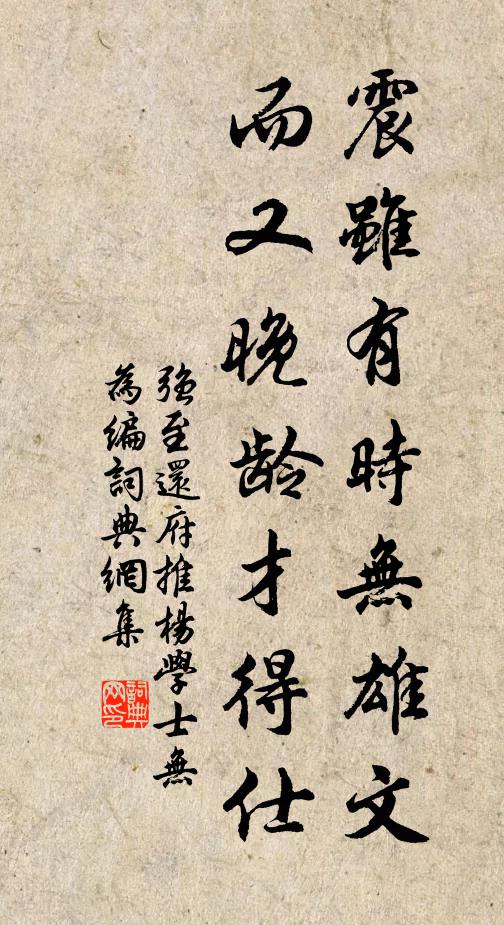 震雖有時無雄文
而又晚龄才得仕
强至還府推楊學士無
為編詞典網集
詞典網印